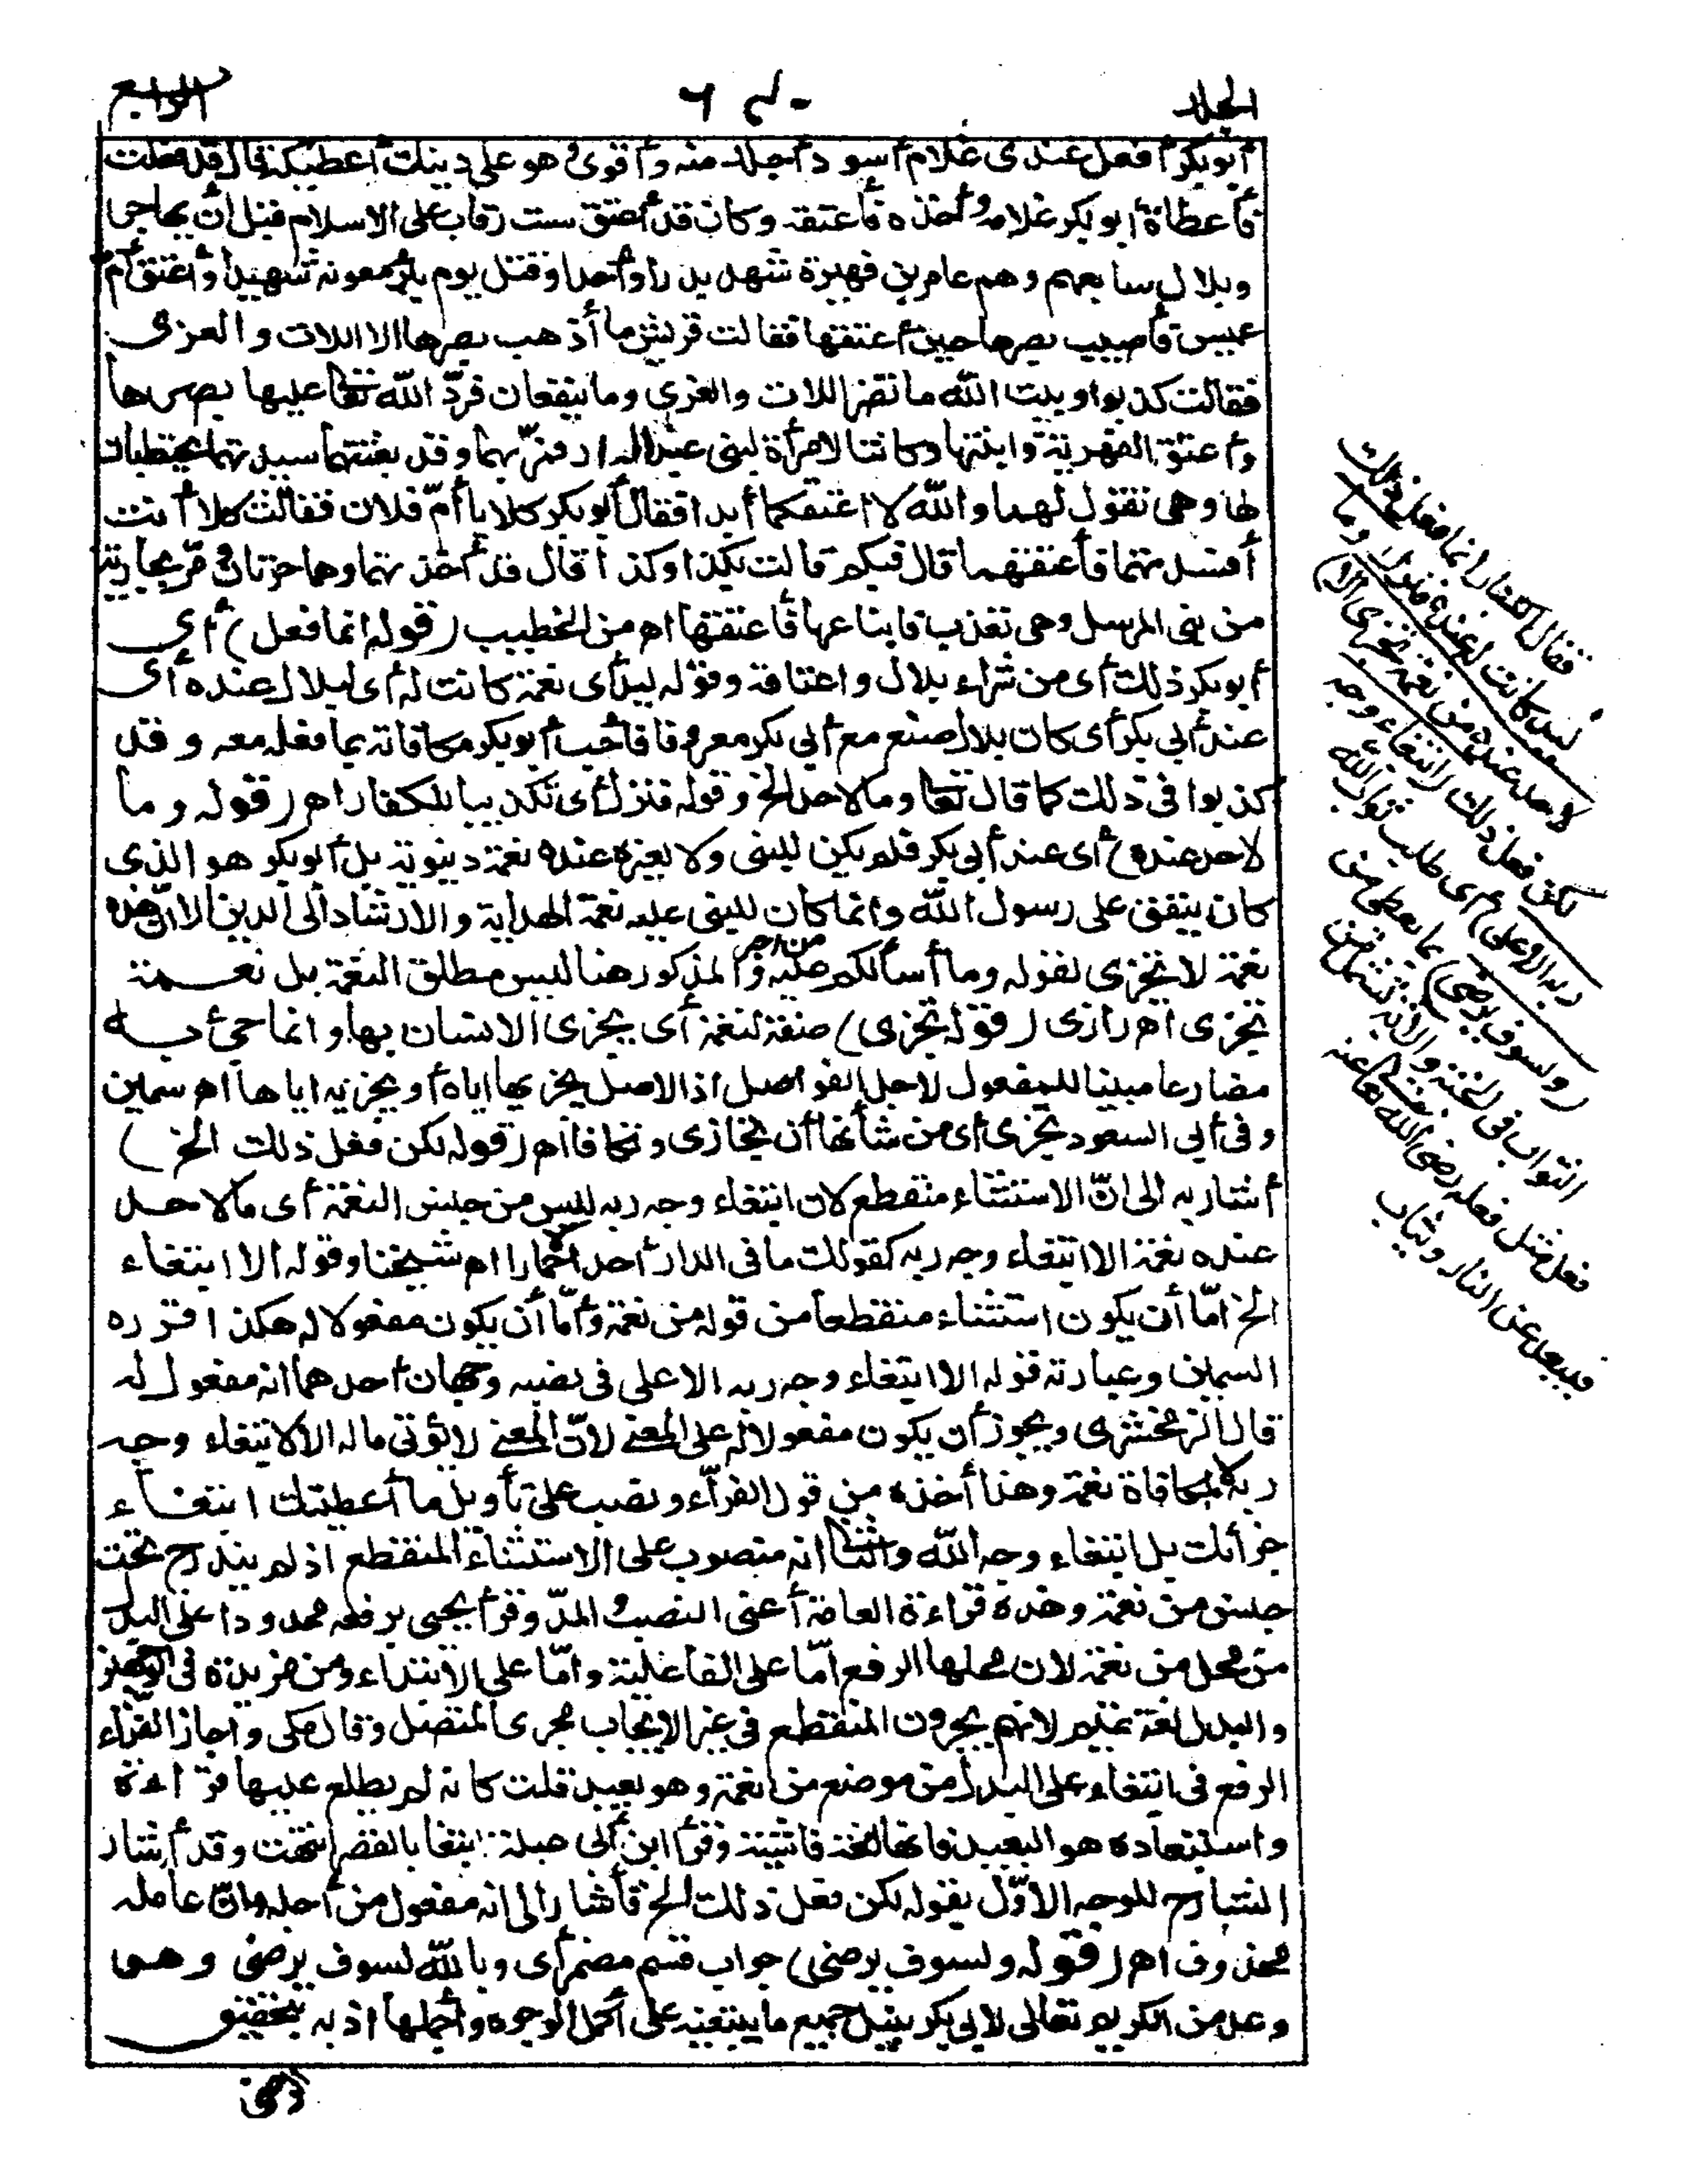 الجلد
الرابع
أبوبكر أفعل عندى غلام أسود أجلد منه وأقوى وهو على دينك أعطيكه قال قد فعلت
فأعطاه أبو بكر غلامه وأخذه فأعتقه وكان قد أعتق ست رقاب على الاسلام قبل أن يهاجر
وبلال سابعهم وهم عامر بن فهيرة شهد بدرا وأحدا وقتل يوم بئر معونة شهيدا وأعتق أم
عميس فأصيب بصرها حين أعتقها فقالت قريش ما أذهب بصرها الا اللات والعزى
فقالت كذبوا وبيت الله ما تضر اللات والعزى وما ينفعان فردّ الله تعا عليها بصرها
وأعتق النهدية وابنتها وكانتا لامرأة لبنى عبد الدار فمرّ بهما وقد بعثتهما سيدتهما يحتطبان
لها وهى تقول لهما والله لا اعتقكما أبدا فقال أبو بكر كلا يا أمّ فلان فقالت كلا أنت
أفسدتهما فأعتقهما قال فبكم قالت بكذا وكذا قال قد أخذتهما وهما حرتان ومرّ بجارية
من بنى المرسل وهى تعذب فابتاعها فأعتقها اه من الخطيب (قوله انما فعل) أى
أبو بكر ذلك أى من شراء بلال واعتاقه وقوله ليد أى نعمة كانت له أى لبلال عنده أى
عند أبى بكر أى كان بلال صنع مع أبى بكر معروفا فأحب أبو بكر مكافاته بما فعله معه وقد
كذبوا فى ذلك كما قال تعا وما لاحد الخ وقوله فنزل أى تكذيبا للكفار اه (قوله وما
لاحد عنده) أى عند أبى بكر فلم يكن للنبى ولا لغيره عنده نعمة دنيوية بل أبو بكر هو الذى
كان ينفق على رسول الله وانما كان للنبى عليه نعمة الهداية والارشاد الى الدين الا أن هذه
نعمة لا تجزى لقوله وما أسألكم عليه من أجر والمذكور هنا ليس مطلق النعمة بل نعمة
تجزى اه رازى (قوله تجزى) صفة لنعمة أى يجزى الانسان بها وانما جئ به
مضارعا مبنيا للمفعول لاجل الفواصل اذ الاصل يجزيها اياه أو يجزيه اياها اه سمين
وفى أبى السعود تجزى أى من شأنها أن تجازى وتكافأ اه (قوله لكن فعل ذلك الخ)
أشار به الى انّ الاستثناء منقطع لان ابتغاء وجه ربه ليس من جنس النعمة أى ما لاحد
عنده نعمة الا ابتغاء وجه ربه كقولك ما فى الدار أحد الا حمارا اه شيخنا وقوله الا ابتغاء
الخ امّا أن يكون استثناء منقطعا من قوله من نعمة وأمّا أن يكون مفعولا له هكذا قرره
السمين وعبارته قوله الا ابتغاء وجه ربه الاعلى فى نصبه وجهان أحدهما انه مفعول له
قال الزمخشرى ويجوز أن يكون مفعولا له على المعنى لانّ المعنى لا يؤتى ماله الا لابتغاء وجه
ربه لا لمكافاة نعمة وهذا أخذه من قول الفرّاء ونصب على تأويل ما أعطيتك ابتغاء
جزائك بل ابتغاء وجه الله والثانى انه منصوب على الاستثناء المنقطع اذ لم يندرج تحت
جنس من نعمة وهذه قراءة العامة أعنى النصب والمدّ وقرأ يحيى برفعه ممدودا على البدل
من محل من نعمة لان محلها الرفع امّا على الفاعلية وامّا على الابتداء ومن مزيدة فى الوجهين
والبدل لغة تميم لانهم يجرون المنقطع فى غير الايجاب مجرى المتصل وقال مكى وأجاز الفرّاء
الرفع فى ابتغاء على البدل من موضع من نعمة وهو بعيد قلت كانه لم يطلع عليها قراءة
واستبعاده هو البعيد فانها لغة فاشية وقرأ ابن أبى عبلة ابتغا بالقصر انتهت وقد أشار
الشارح للوجه الاوّل بقوله لكن فعل ذلك الخ فأشار الى انه مفعول من أجله وانّ عامله
محذوف اه (قوله ولسوف يرضى) جواب قسم مضمر أى وبالله لسوف يرضى وهو
وعد من الكريم تعالى لابى بكر بنيل جميع ما يبتغيه على أكمل الوجوه وأجملها اذ به يتحقق
فقال الكفار انما فعل ذلك
ليد كانت له عنده فنزل (وما
لاحد عنده من نعمة تجزى الا)
لكن فعل ذلك (ابتغاء وجه
ربه الاعلى) أى طلب ثواب الله
(ولسوف يرضى) بما يعطى من
الثواب فى الجنة والآية تشمل من
فعل مثل فعله رضى الله تعا عنه
فيبعد عن النار ويثاب